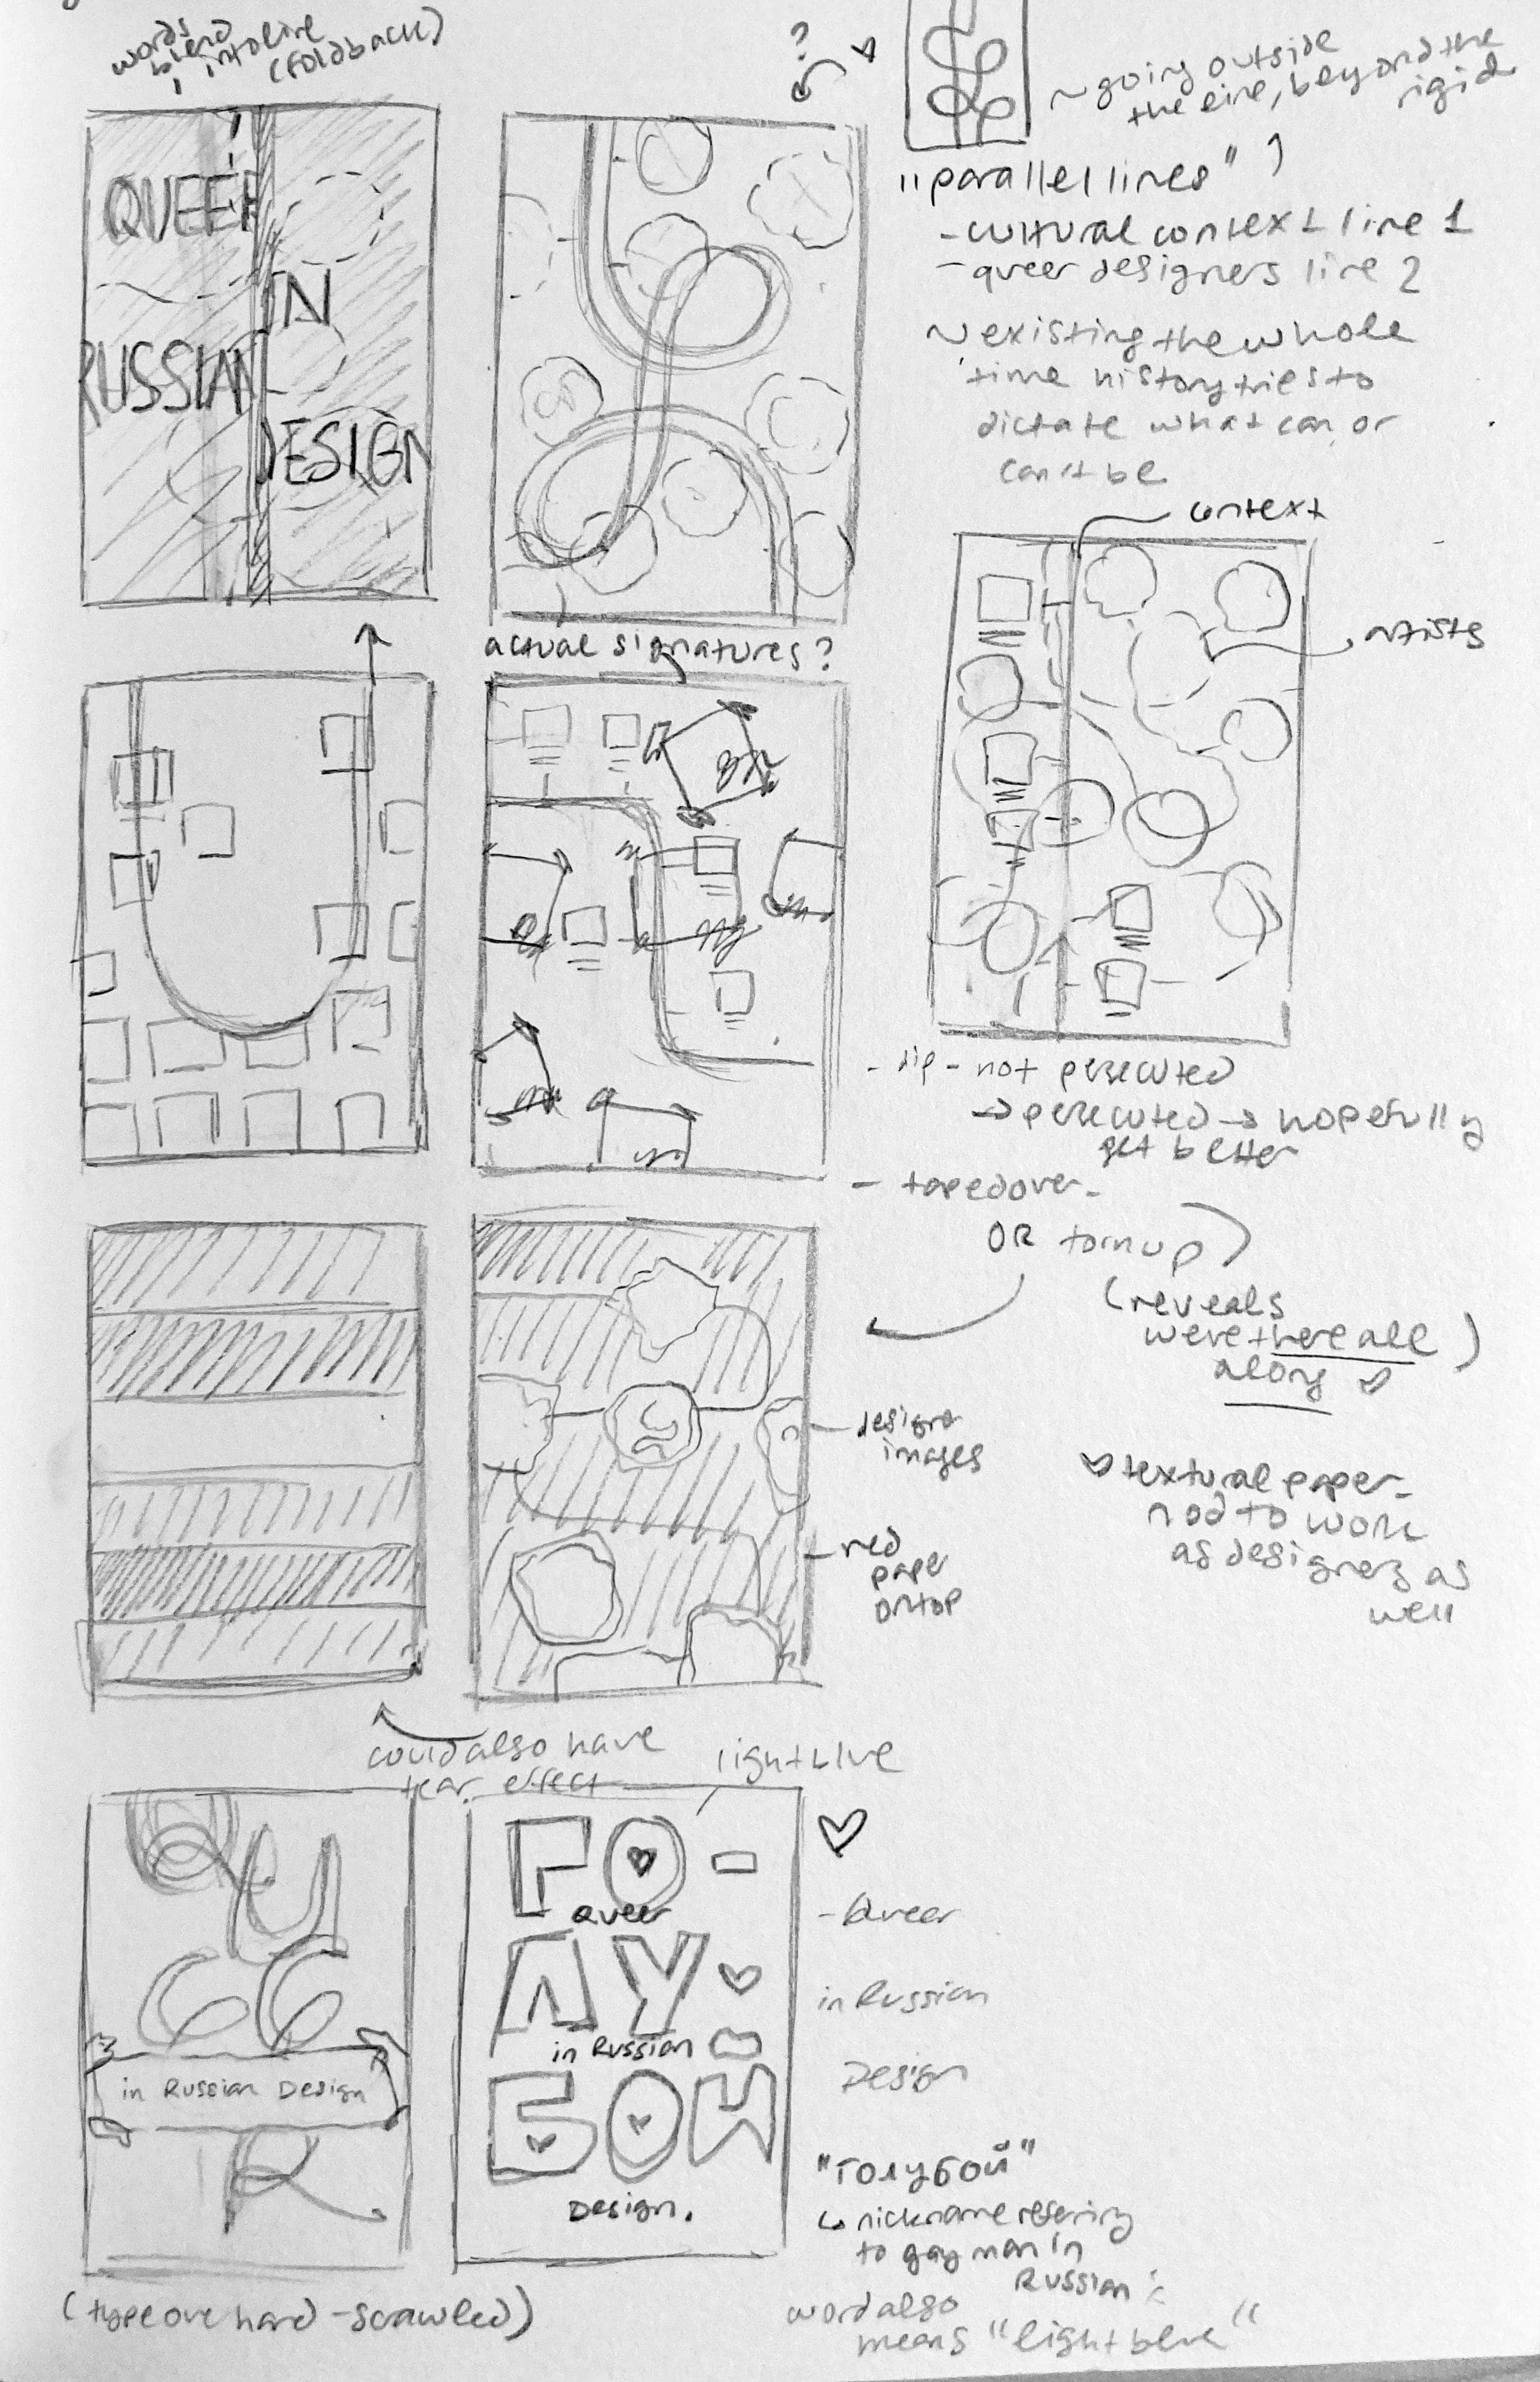 words
blend
into line
(foldback)
?
~going outside
the line, beyond the
rigid
"parallel lines"
-cultural context line 1
-queer designers line 2
~existing the whole
time history tries to
dictate what can or
can't be
QUEER
IN
RUSSIAN
DESIGN
actual signatures?
context
artists
- dip - not persecuted
→ persecuted → hopefully
get better
- taped over -
OR torn up
(reveals
were there all
along )
design +
images
textural paper -
nod to work
as designers as
well
red
paper
on top
could also have
tear effect
light blue
QU
ГО-
Queer
ЛУ
in Russian
БОЙ
Design.
EE
in Russian Design
R
-Queer
in Russian
Design
"голубой"
↳ nickname referring
to gay man in
Russian :
word also
means "light blue"
(type over hand-scrawled)